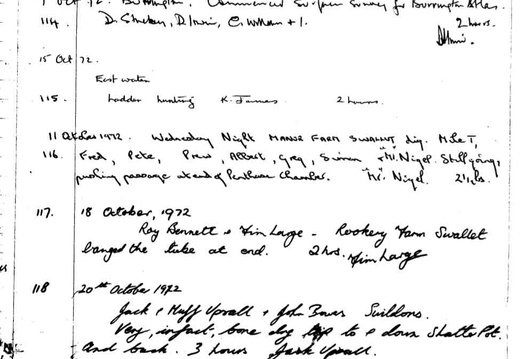 Oct 72. Burrington. Commenced Surface Survey for Burrington Atlas.
114. D. Stuckey, D. Irwin, C. Williams + 1. 2 hours.
D Irwin.
15 Oct 72.
East water
115. Ladder hunting K. James 2 hours
11 October 1972. Wednesday Night MANOR FARM SWALLET dig. Mike T,
116. Fred, Pete, Prew, Albert, Greg, Simon + "Mr. Nigel. Still going,
pushing passage at end of Penthouse Chamber. "Mr. Nigel. 2½ hrs.
117. 18 October, 1972
Roy Bennett + Tim Large - Rookery Farm Swallet
banged the tube at end. 2 hrs. Tim Large
118 20th October 1972
Jack + Muff Upsall + John Bowes Swildons.
Very, infact, bone dry to + down Shatter Pot.
And back. 3 hours Jack Upsall.